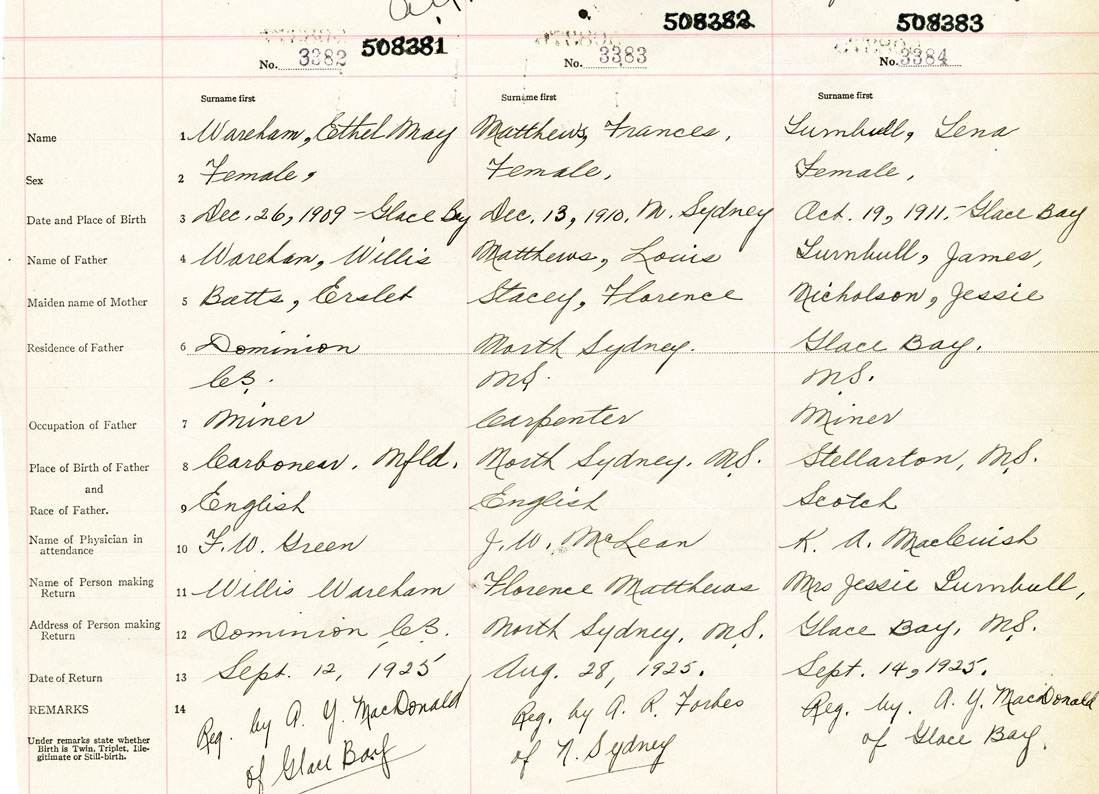 508381 508382 508383
No. 3382 No. 3383 No. 3384
Surname first Surname first Surname first
Name 1 Wareham, Ethel May Matthews, Frances, Turnbull, Lena
Sex 2 Female, Female, Female,
Date and Place of Birth 3 Dec. 26, 1909 - Glace Bay Dec. 13, 1910. N. Sydney Oct. 19, 1911. - Glace Bay
Name of Father 4 Wareham, Willis Matthews, Louis Turnbull, James,
Maiden name of Mother 5 Batts, Erslet Stacey, Florence Nicholson, Jessie
Residence of Father 6 Dominion North Sydney. Glace Bay.
C.B. N.S. N.S.
Occupation of Father 7 Miner Carpenter Miner
Place of Birth of Father 8 Carbonear. Nfld. North Sydney. N.S. Stellarton, N.S.
and
Race of Father. 9 English English Scotch
Name of Physician in
attendance 10 F. W. Green J. W. McLean K. A. MacCuish
Name of Person making
Return 11 Willis Wareham Florence Matthews Mrs Jessie Turnbull,
Address of Person making
Return 12 Dominion C.B. North Sydney, N.S. Glace Bay, N.S.
Date of Return 13 Sept. 12, 1925 Aug. 28, 1925. Sept. 14, 1925.
REMARKS 14 Reg. by A. Y. MacDonald Reg. by A. R. Forbes Reg. by. A. Y. MacDonald
of Glace Bay of N. Sydney of Glace Bay.
Under remarks state whether
Birth is Twin, Triplet, Ille-
gitimate or Still-birth.